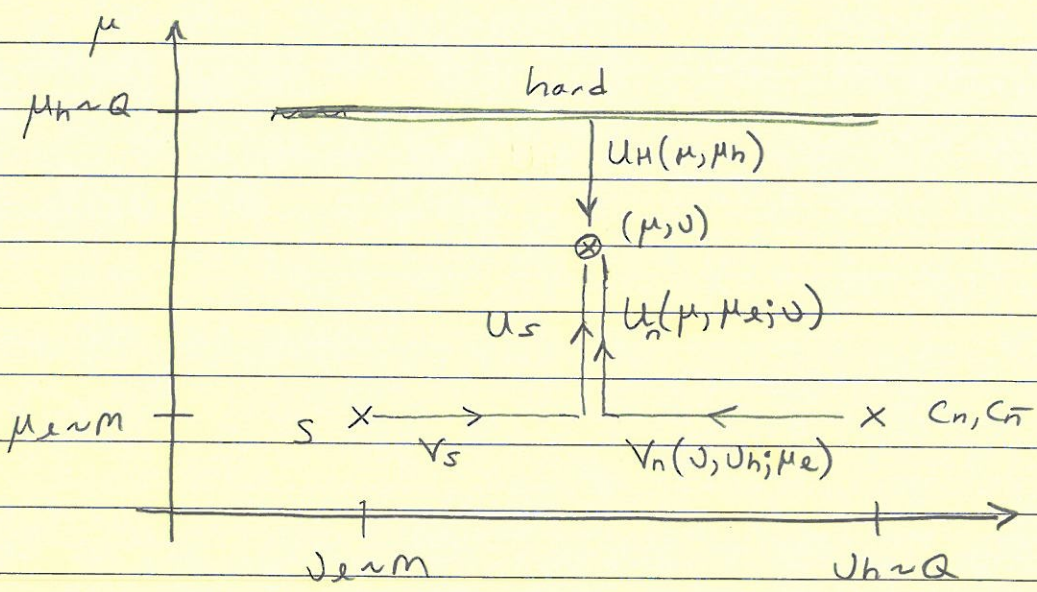 μ
μh~Q
hard
UH(μ,μh)
(μ,ν)
Us
Un(μ,μℓ;ν)
μℓ~M
S
Cn, Cn̄
Vs
Vn(ν,νh;μℓ)
νℓ~M
νh~Q